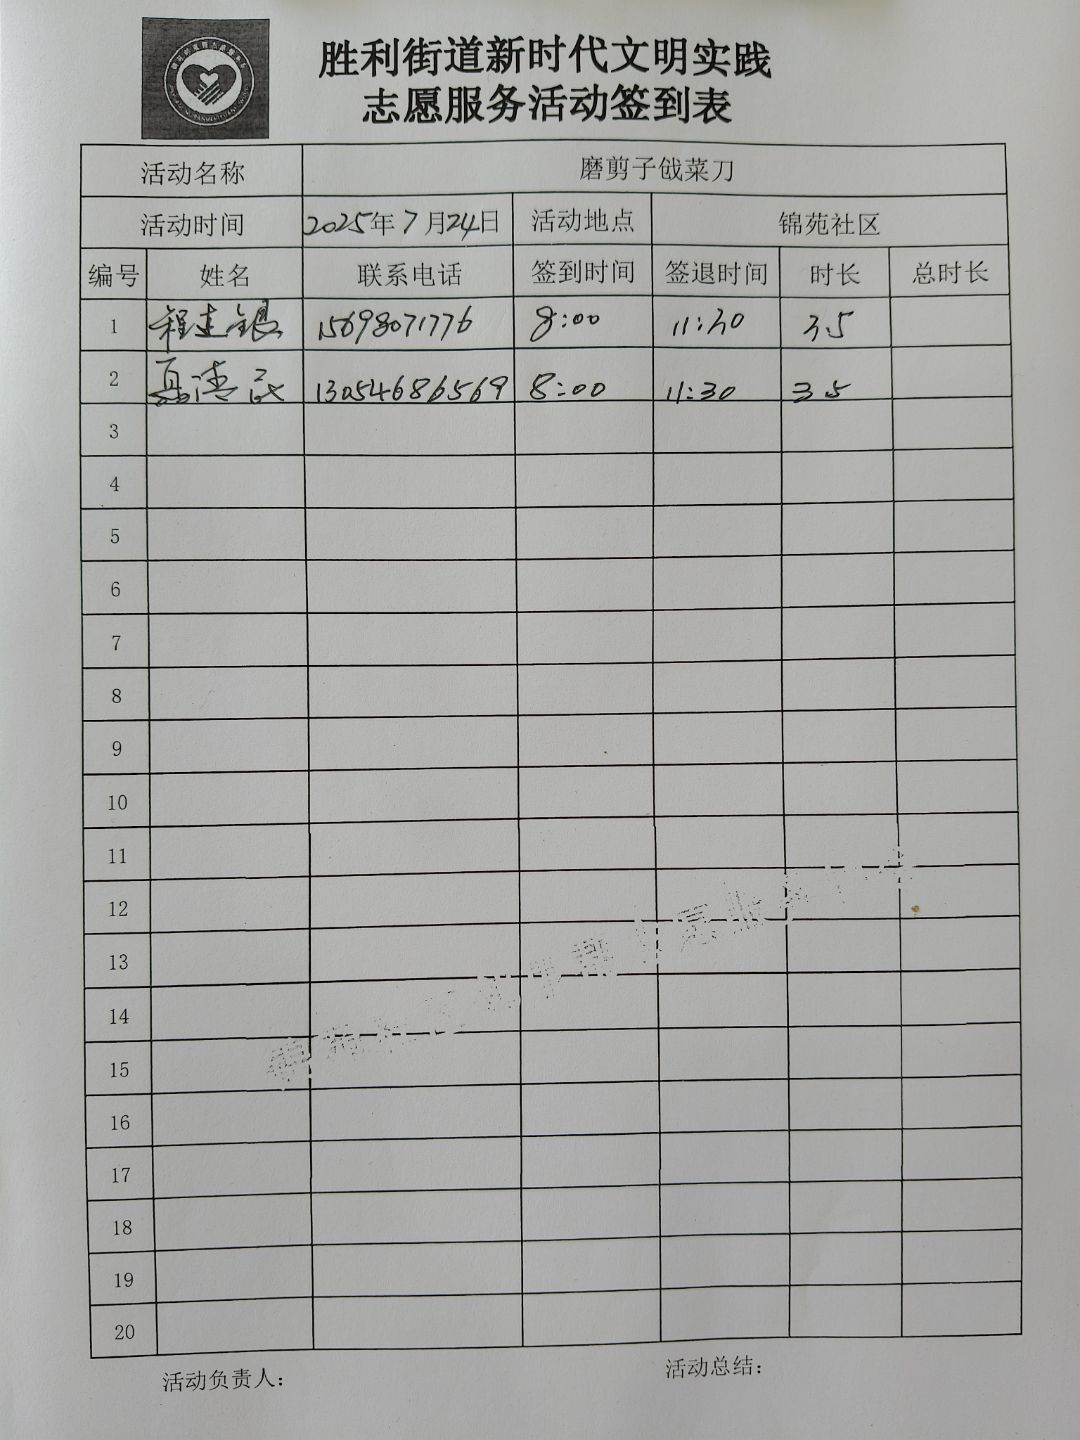 胜利街道新时代文明实践
志愿服务活动签到表
活动名称 磨剪子戗菜刀
活动时间 2025年7月24日 活动地点 锦苑社区
编号 姓名 联系电话 签到时间 签退时间 时长 总时长
1 程建银 15698071776 8:00 11:30 3.5
2 聂清 13054686569 8:00 11:30 3.5
3
4
5
6
7
8
9
10
11
12
13
14
15
16
17
18
19
20
活动负责人： 活动总结：